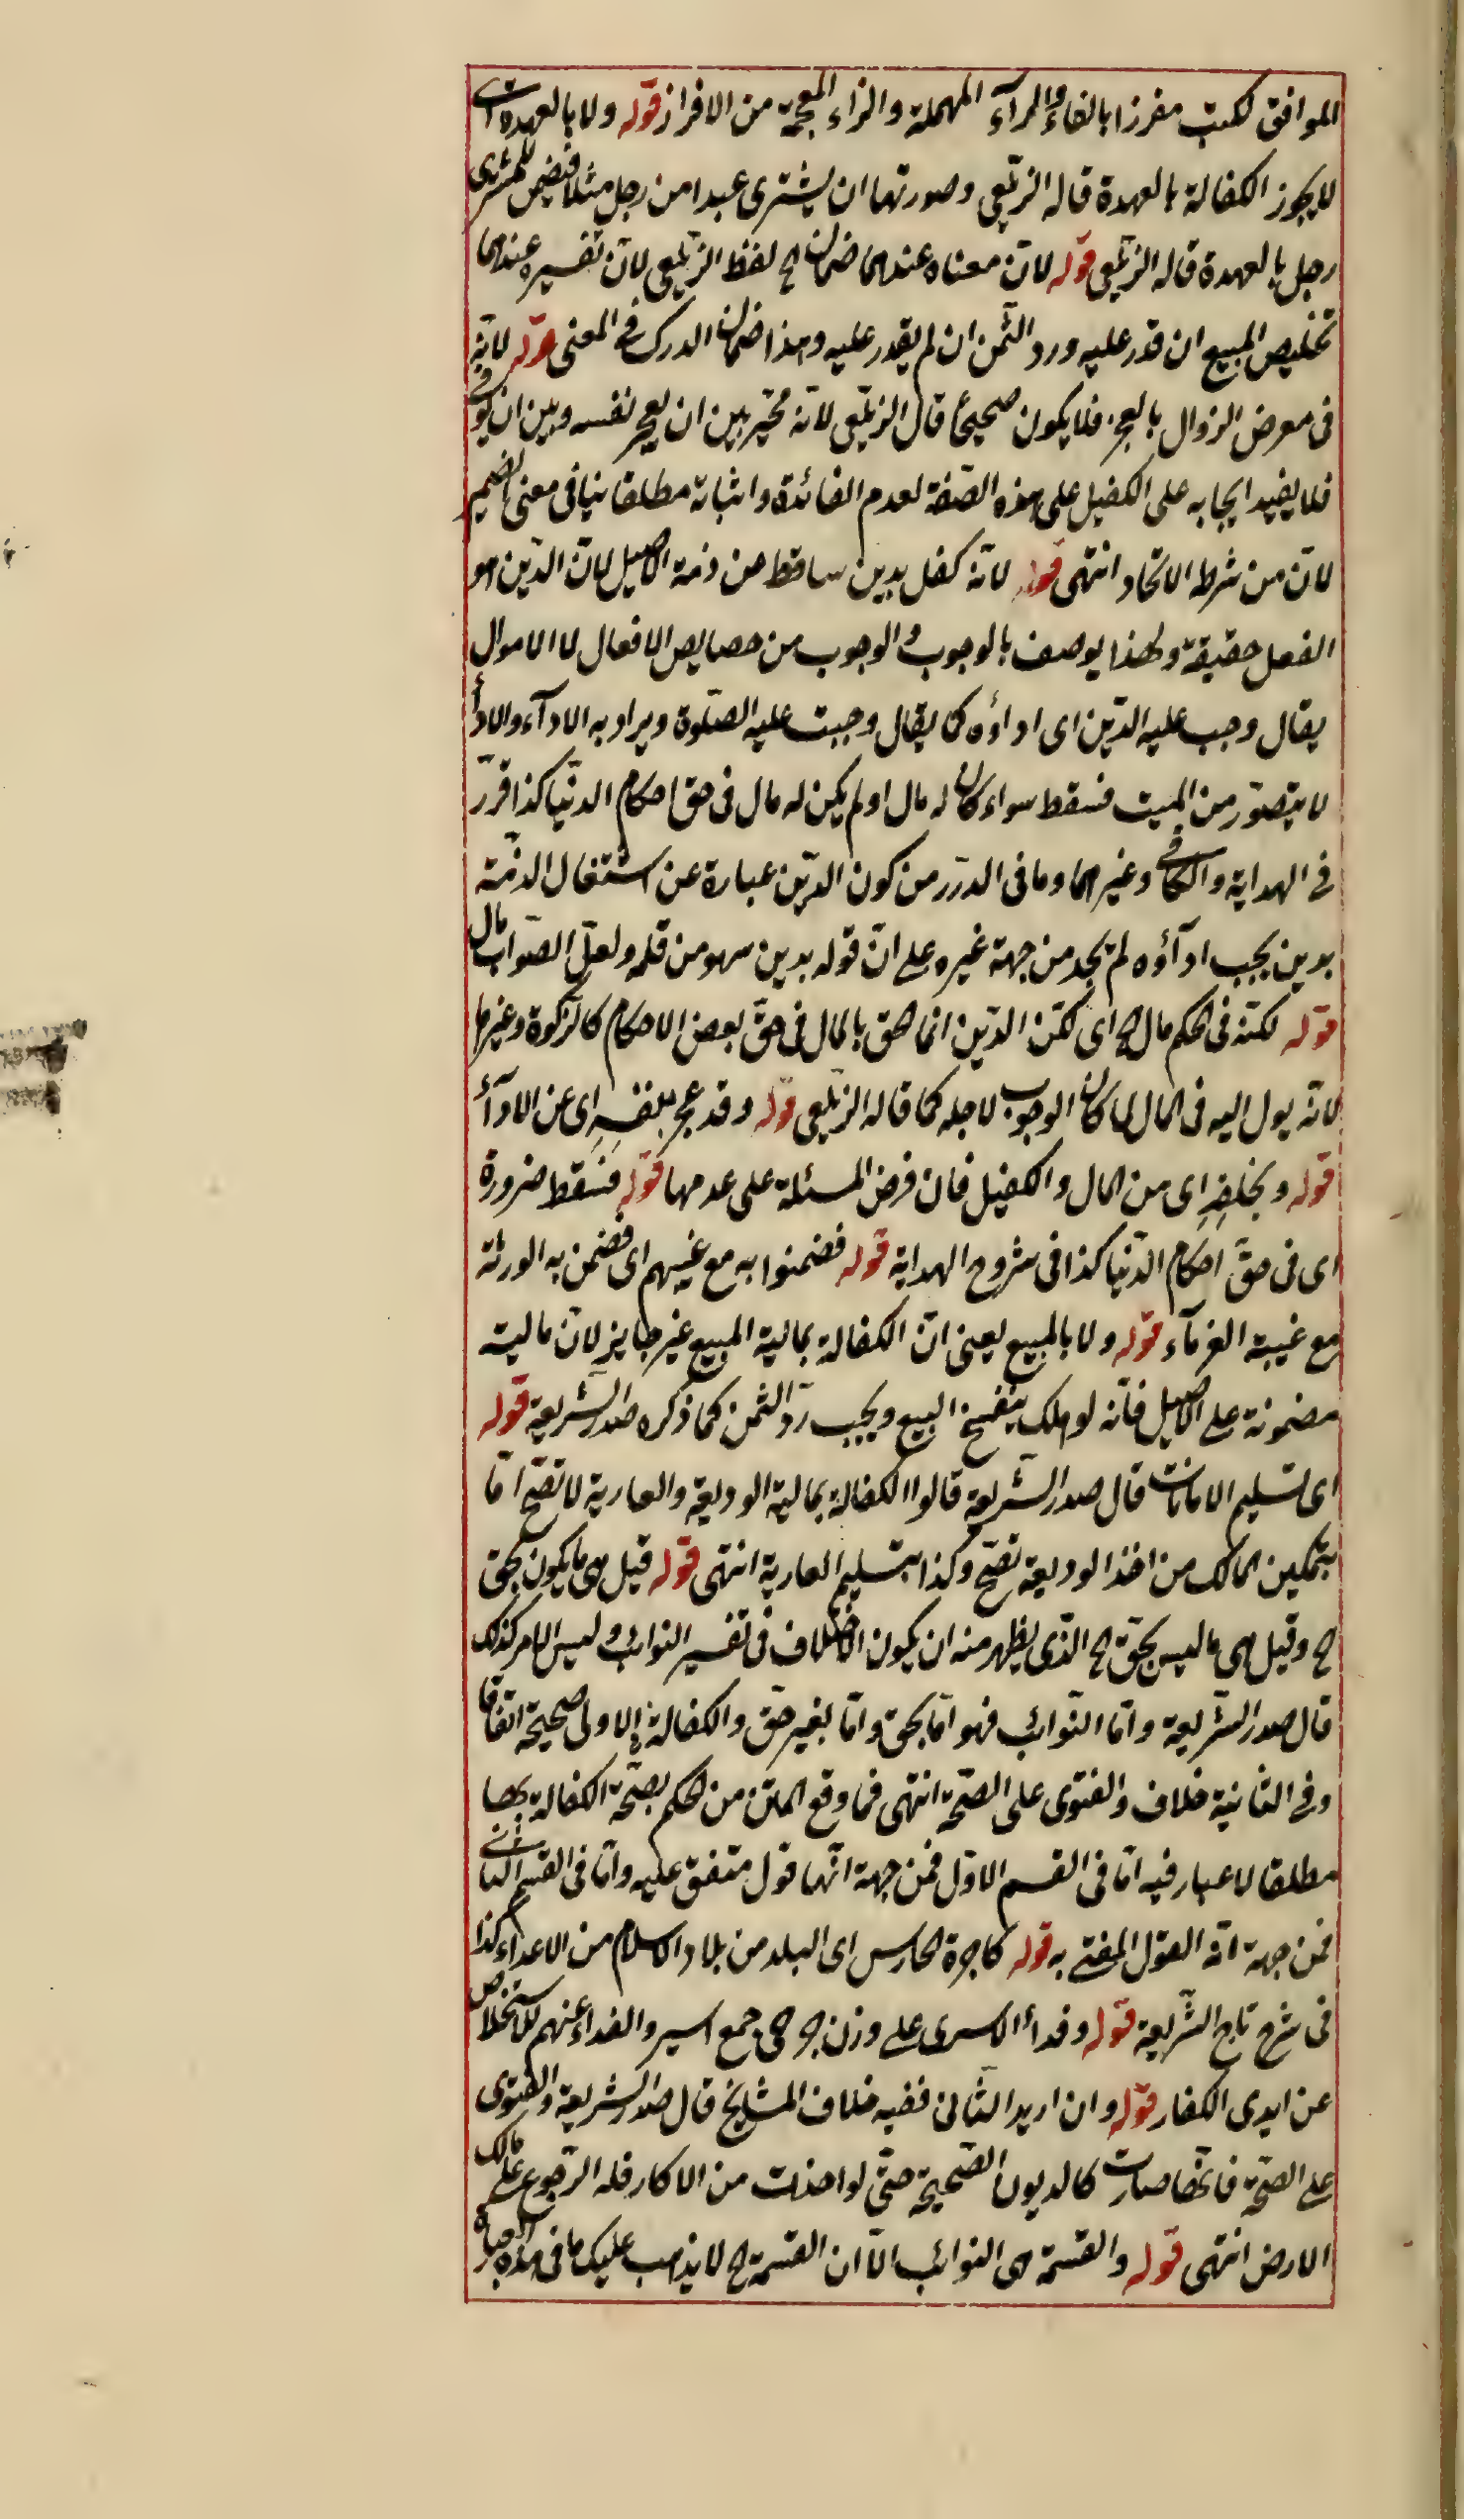 الموافق لكتب مفرزا بالفاء والرآء المهملة والزاء المعجمة من الافراز قوله ولا بالعهدة اى
لا يجوز الكفالة بالعهدة قاله الزيلعى وصورتها ان يشترى عبدا من رجل مثلا فيضمن للمشترى
رجل بالعهدة قاله الزيلعى قوله لانّ معناه عندهما ضمان الخ لفظ الزيلعى لانّ تفسيره عندهما
تخليص المبيع ان قدر عليه ورد الثمن ان لم يقدر عليه وهذا ضمان الدرك فى المعنى قوله لانّه
فى معرض الزوال بالعجز فلا يكون صحيحاً قال الزيلعى لانه مخيّر بين ان يعجز نفسه وبين ان يوفى
فلا يفيد ايجابه على الكفيل على هذه الصّفة لعدم الفائدة واثباته مطلقا ينافى معنى الضم
لانّ من شرطه الاتحاد انتهى قوله لانّه كفل بدين ساقط من ذمة الاصيل لانّ الدّين هو
الفعل حقيقة ولهذا يوصف بالوجوب والوجوب من خصايص الافعال لا الاموال
يقال وجب عليه الدّين اى اداؤه كما يقال وجبت عليه الصّلوة ويراد به الادآء والادأ
لا يتصوّر من الميت فسقط سواء كان له مال او لم يكن له مال فى حق احكام الدنيا كذا قرّر
فى الهداية والكافى وغيرهما وما فى الدرر من كون الدّين عبارة عن اشتغال الذمّة
بدين يجب ادآؤه لم نجد من جهة غيره على انّ قوله بدين سهو من قلمه ولعلّ الصّواب بمال
قوله لكنّه فى الحكم مال الخ اى لكن الدّين انما الحق بالمال فى حقّ بعض الاحكام كالزكوة وغيرها
لانّه يول اليه فى المال لما كان الوجوب لاجله كما قاله الزيلعى قوله وقد عجز بنفسِهِ اى عن الادآء
قوله وبخلفِهِ اى من المال والكفيل فان فرض المسئلة على عدمها قوله فسقط ضرورة
اى فى حقّ احكام الدّنيا كذا فى شروح الهداية قوله فضمنوا به مع غيبتهم اى فضمن به الورثة
مع غيبة الغرمآء قوله ولا بالمبيع يعنى انّ الكفالة بمالية المبيع غير جايز لانّ ماليته
مضمونة على الاصيل فانّه لو هلك ينفسخ البيع ويجب ردّ الثمن كما ذكره صدر الشريعة قوله
اى تسليم الامانات قال صدر الشّريعة قالوا الكفالة بمالية الوديعة والعارية لا تصّح امّا
بتمكين المالك من اخذ الوديعة تصّح وكذا بتسليم العارية انتهى قوله قيل هى ما يكون بحق
الخ وقيل هى ما ليس بحقّ الخ الذى يظهر منه ان يكون الاختلاف فى تفسير النوائب وليس الامر كذلك
قال صدر الشّريعة وامّا النّوائب فهو امّا بحق وامّا بغير حقّ والكفالة فى الاولى صحيحة اتفاقا
وفى الثانية خلاف والفتوى على الصّحة انتهى فما وقع المتن من الحكم بصّحة الكفالة بها
مطلقا لا غبار فيه امّا فى القسم الاوّل فمن جهة انّها قول متفق عليه وامّا فى القسم الثانى
فمن جهة انّه القول المفتى به قوله كاجرة الحارس اى البلد من بلاد الاسلام من الاعداء كذا
فى شرح تاج الشّريعة قوله وفداء الاسرى على وزن جرحى جمع اسير والفداء عنهم للاستخلاص
عن ايدى الكفار قوله وان اريد الثّانى ففيه خلاف المشايخ قال صدر الشريعة والفتوى
على الصّحة فانّها صارت كالديون الصّحيحة حتّى لو اخذت من الاكار فله الرّجوع على مالك
الارض انتهى قوله والقسمة هى النوائب الّا ان القسمة الخ لا يذهب عليك ما فى هذه العبارة